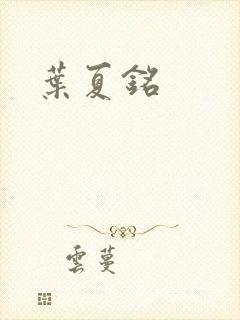 葉夏銘
雲蔓